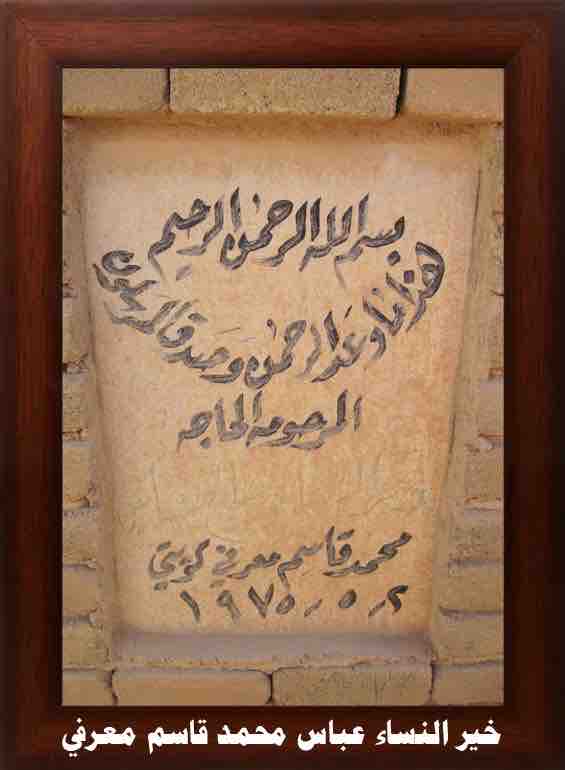 بسم الله الرحمن الرحيم
هذا ما وعد الرحمن وصدق المرسلون
المرحومه الحاجه
محمد قاسم معرفي كويتي
٢ ـ ٥ ـ ١٩٧٥
خير النساء عباس محمد قاسم معرفي